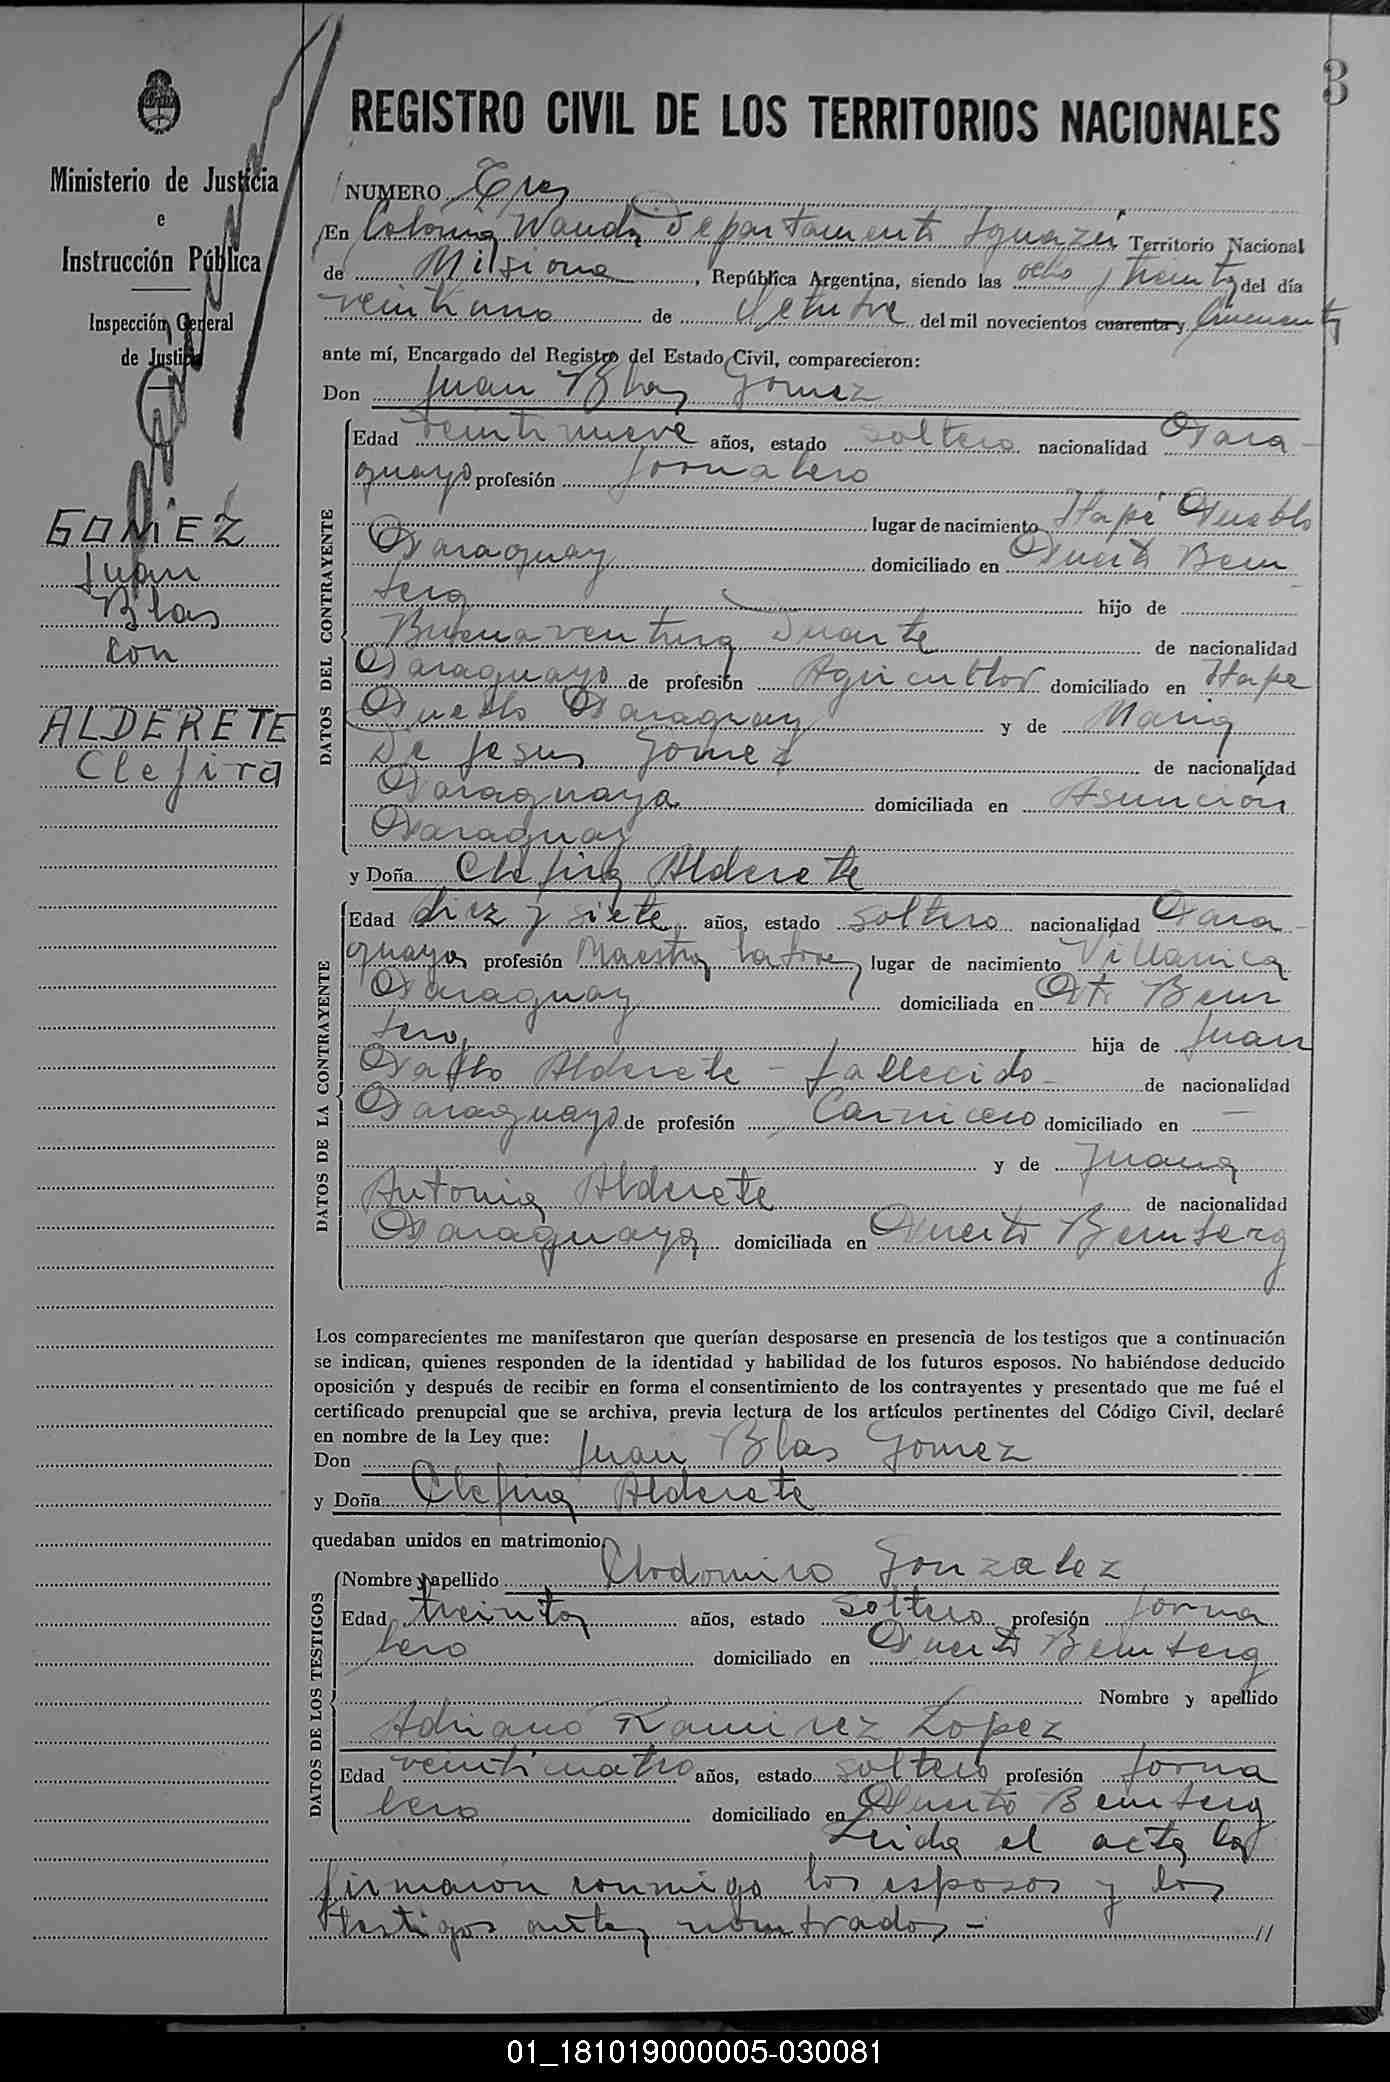 3
Ministerio de Justicia
e
Instrucción Pública
Inspección General
de Justicia
GOMEZ
Juan
Blas
con
ALDERETE
Clefira
REGISTRO CIVIL DE LOS TERRITORIOS NACIONALES
NUMERO Tres
En Colonia Wanda Departamento Iguazú Territorio Nacional
de Misiones, República Argentina, siendo las ocho y treinta del día
veintiuno de del mil novecientos cuarenta y cincuenta
ante mí, Encargado del Registro del Estado Civil, comparecieron:
Don Juan Blas Gomez
DATOS DEL CONTRAYENTE
Edad veintinueve años, estado soltero nacionalidad Para-
guayo profesión Jornalero
lugar de nacimiento Itapé Pueblo
Paraguay domiciliado en Puerto Bem
berg hijo de
Buenaventura Duarte de nacionalidad
Paraguayo de profesión Agricultor domiciliado en Itape
Pueblo Paraguay y de Maria
De Jesus Gomez de nacionalidad
Paraguaya domiciliada en Asunción
Paraguay
y Doña Clefira Alderete
DATOS DE LA CONTRAYENTE
Edad diez y siete años, estado soltera nacionalidad Para-
guaya profesión Maestra labores lugar de nacimiento Villarica
Paraguay domiciliada en Pto Bem
berg hija de Juan
Pablo Alderete - fallecido - de nacionalidad
Paraguayo de profesión Carnicero domiciliado en —
y de Juana
Antonia Alderete de nacionalidad
Paraguaya domiciliada en Puerto Bemberg
Los comparecientes me manifestaron que querían desposarse en presencia de los testigos que a continuación
se indican, quienes responden de la identidad y habilidad de los futuros esposos. No habiéndose deducido
oposición y después de recibir en forma el consentimiento de los contrayentes y presentado que me fué el
certificado prenupcial que se archiva, previa lectura de los artículos pertinentes del Código Civil, declaré
en nombre de la Ley que:
Don Juan Blas Gomez
y Doña Clefira Alderete
quedaban unidos en matrimonio.
DATOS DE LOS TESTIGOS
Nombre y apellido Clodomiro Gonzalez
Edad treinta años, estado soltero profesión Jorna
lero domiciliado en Puerto Bemberg
Nombre y apellido
Adriano Ramirez Lopez
Edad veinticuatro años, estado soltero profesión Jorna
lero domiciliado en Puerto Bemberg
Leida el acta la
firmaron conmigo los esposos y los
testigos antes nombrados - //
01_181019000005-030081